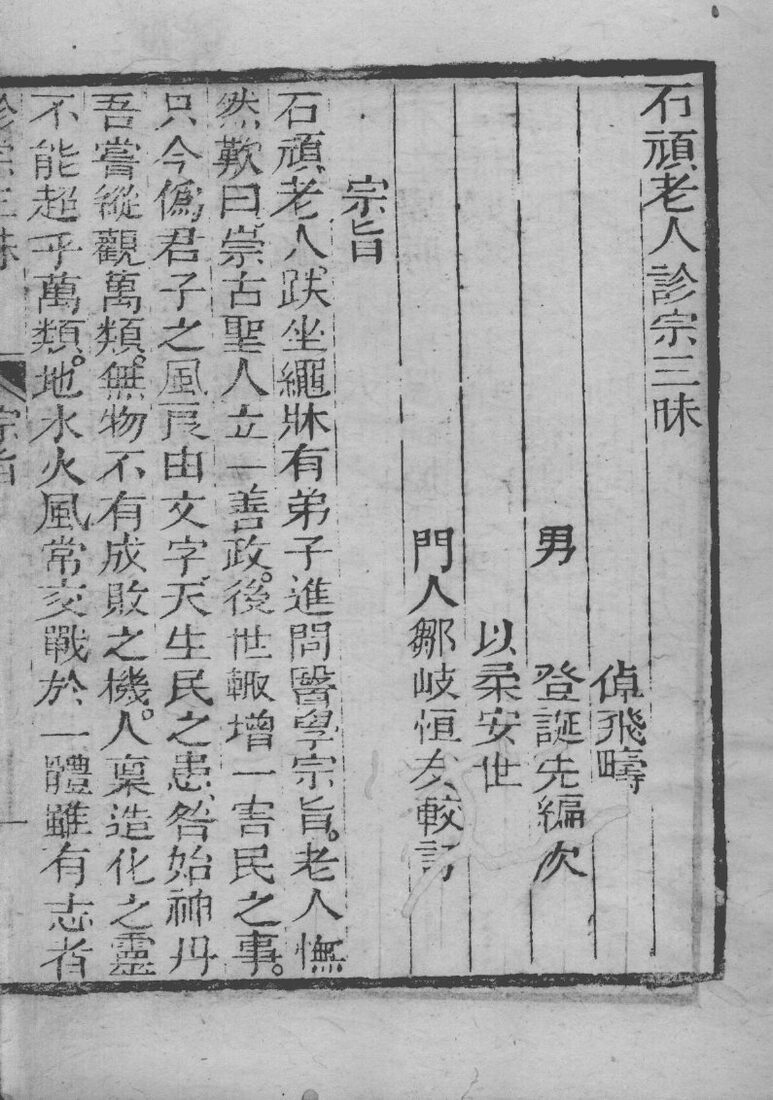 石頑老人診宗三昧
倬飛疇
男　登誕先編次
以柔安世
門人鄒岐恒友較訂
宗旨
石頑老人。趺坐繩牀有弟子進問醫學宗旨。老人憮
然歎曰崇古聖人立一善政。後世輙增一害民之事。
只今爲君子之風。良由文字。天生民之患咎始神丹
吾嘗縱觀萬類。無物不有成敗之機。人稟造化之靈
不能超乎萬類。地水火風常交戰於一體雖有志者
診宗三昧　宗旨　一